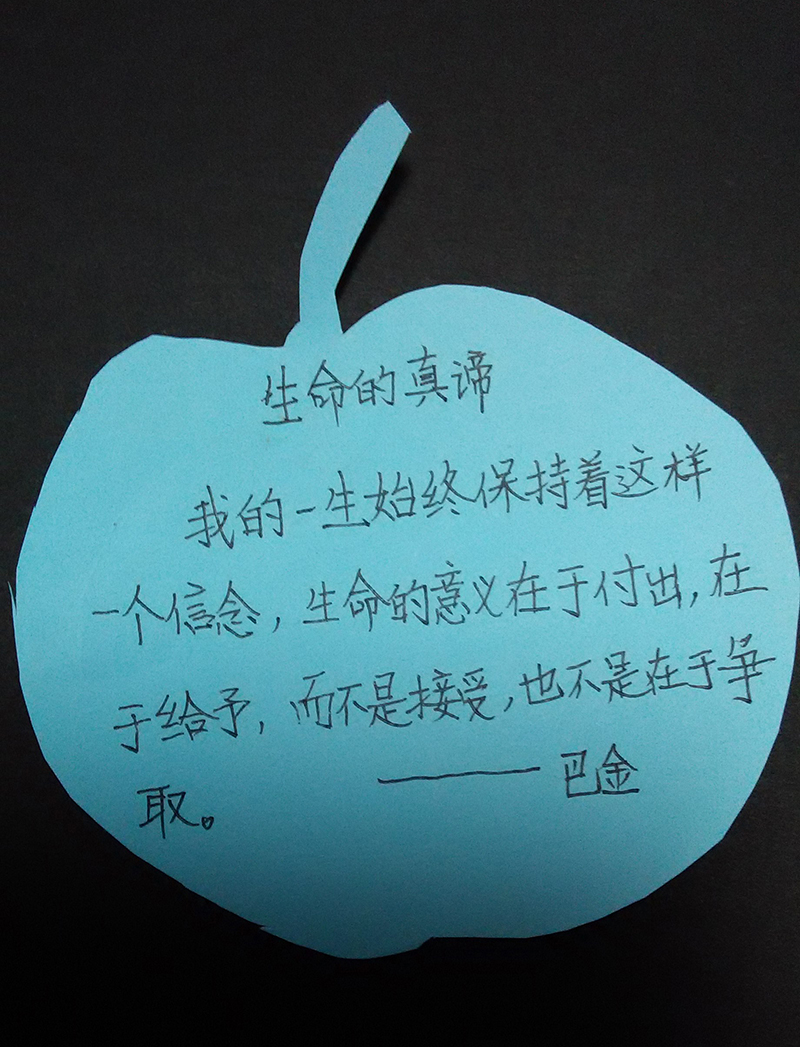 生命的真谛
我的一生始终保持着这样
一个信念，生命的意义在于付出，在
于给予，而不是接受，也不是在于争
取。
——巴金